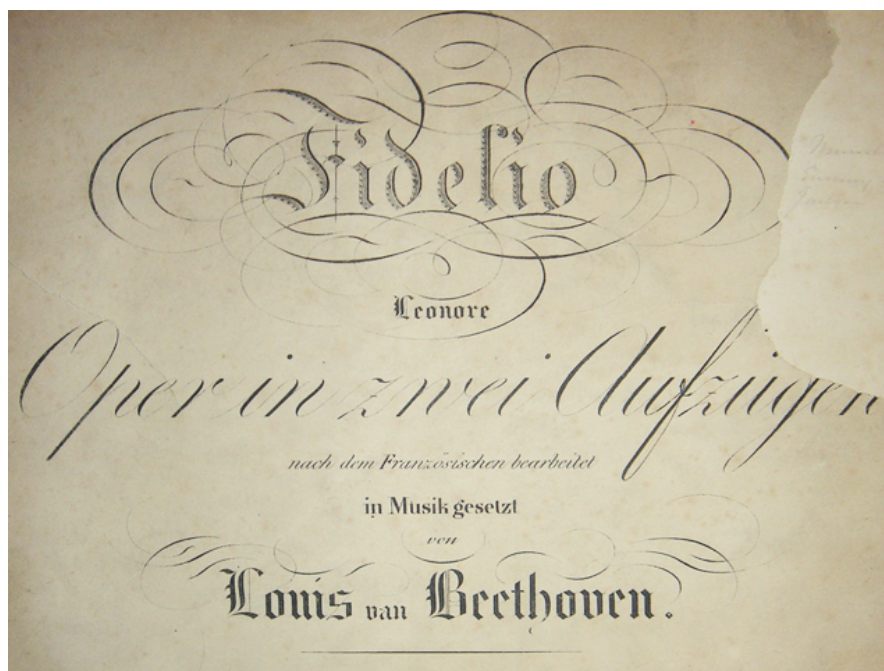 Fidelio
Leonore
Oper in zwei Aufzügen
nach dem Französischen bearbeitet
in Musik gesetzt
von
Louis van Beethoven.